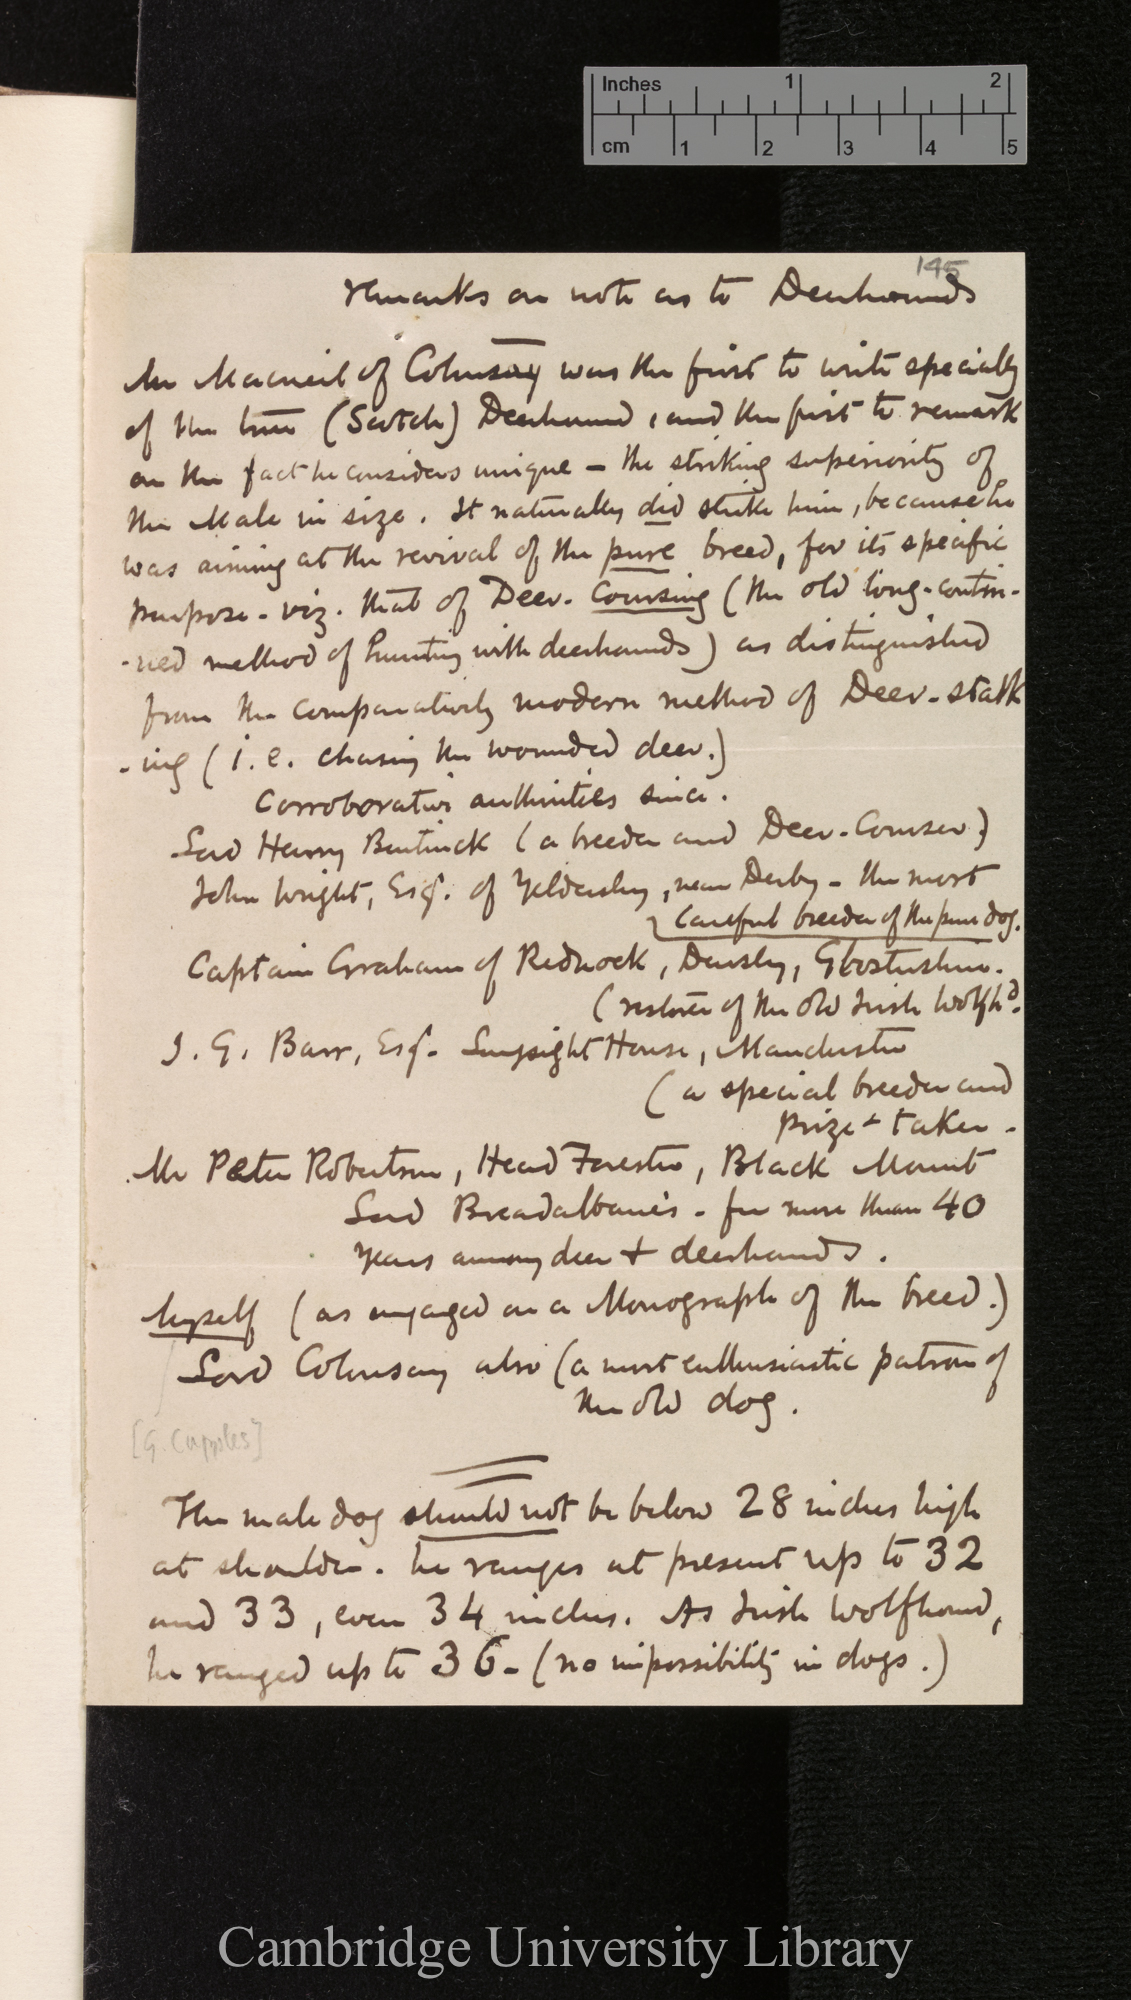 Inches 1 2
cm 1 2 3 4 5
145
remarks on note as to Deerhounds
Mr Macneil of Colonsay was the first to write specially
of the true (Scotch) Deerhound, and the first to remark
on the fact he considers unique – the striking superiority of
the Male in size. It naturally did strike him, because he
was aiming at the revival of the pure breed, for its specific
purpose – viz. that of Deer-Coursing (the old long-contin-
-ued method of hunting with deerhounds) as distinguished
from the comparatively modern method of Deer-stalk
-ing (i.e. chasing the wounded deer.)
Corroborative authorities since.
Lord Henry Bentinck (a breeder and Deer-Courser)
John Wright, Esq. of Yeldersley, near Derby – the most
careful breeder of the pure dog.
Captain Graham of Rednock, Dursley, Glostershire.
(restorer of the old Irish Wolfhd.
J. G. Barr, Esq. House, Manchester
(a special breeder and
prize-taker.
Mr Peter Robertson, Head Forester, Black Mount
Lord Breadalbane's – for more than 40
years among deer & deerhounds.
Myself (as engaged on a Monograph of the breed.)
Lord Colonsay also (a most enthusiastic patron of
the old dog.
[G. Cupples]
The male dog should not be below 28 inches high
at shoulder. he ranges at present up to 32
and 33, even 34 inches. As Irish Wolfhound,
he ranged up to 36 – (no impossibility in dogs.)
Cambridge University Library